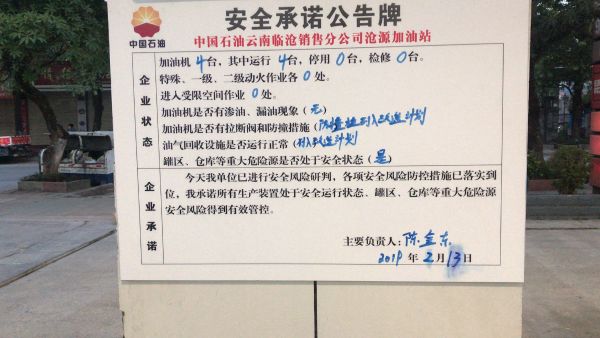 安全承诺公告牌
中国石油
中国石油云南临沧销售分公司沧源加油站
企业状态
加油机4台，其中运行4台，停用0台，检修0台。
特殊、一级、二级动火作业各0处。
进入受限空间作业0处。
加油机是否有渗油、漏油现象（无）
加油机是否有拉断阀和防撞措施（防撞柱列入改造计划）
油气回收设施是否运行正常（列入改造计划）
罐区、仓库等重大危险源是否处于安全状态（是）
企业承诺
今天我单位已进行安全风险研判，各项安全风险防控措施已落实到
位，我承诺所有生产装置处于安全运行状态、罐区、仓库等重大危险源
安全风险得到有效管控。
主要负责人：陈金东
2019年2月13日